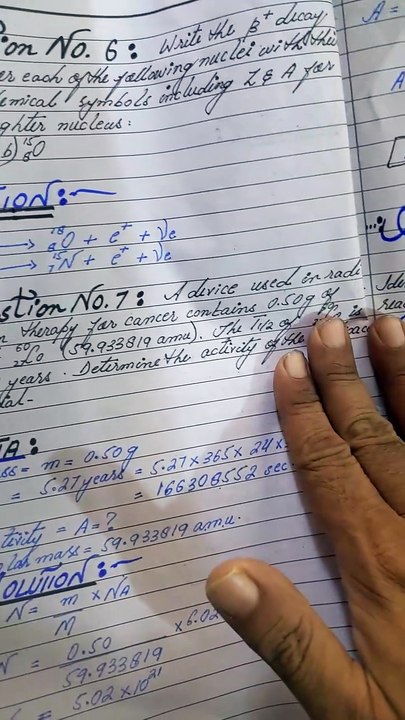 on No. 6: Write the β⁺ decay
er each of the following nuclei with the
emical symbols including Z & A for
ghter nucleus:
b) ¹⁵₈O
ION:-
→ ¹⁸₈O + e⁺ + νe
→ ¹⁵₇N + e⁺ + νe
stion No. 7: A device used in radi
n therapy for cancer contains 0.50g of
⁶⁰₂₇Co (59.933819 amu). The T1/2 of is
years. Determine the activity of the
tal-
TA:
ass = m = 0.50g
= 5.27 years = 5.27×365×24×
= 166308552 sec
tivity = A = ?
lar mass = 59.933819 amu.
OLUTION:-
N = m/M × NA
N = 0.50/59.933819 × 6.02
= 5.02×10²¹
A =
A